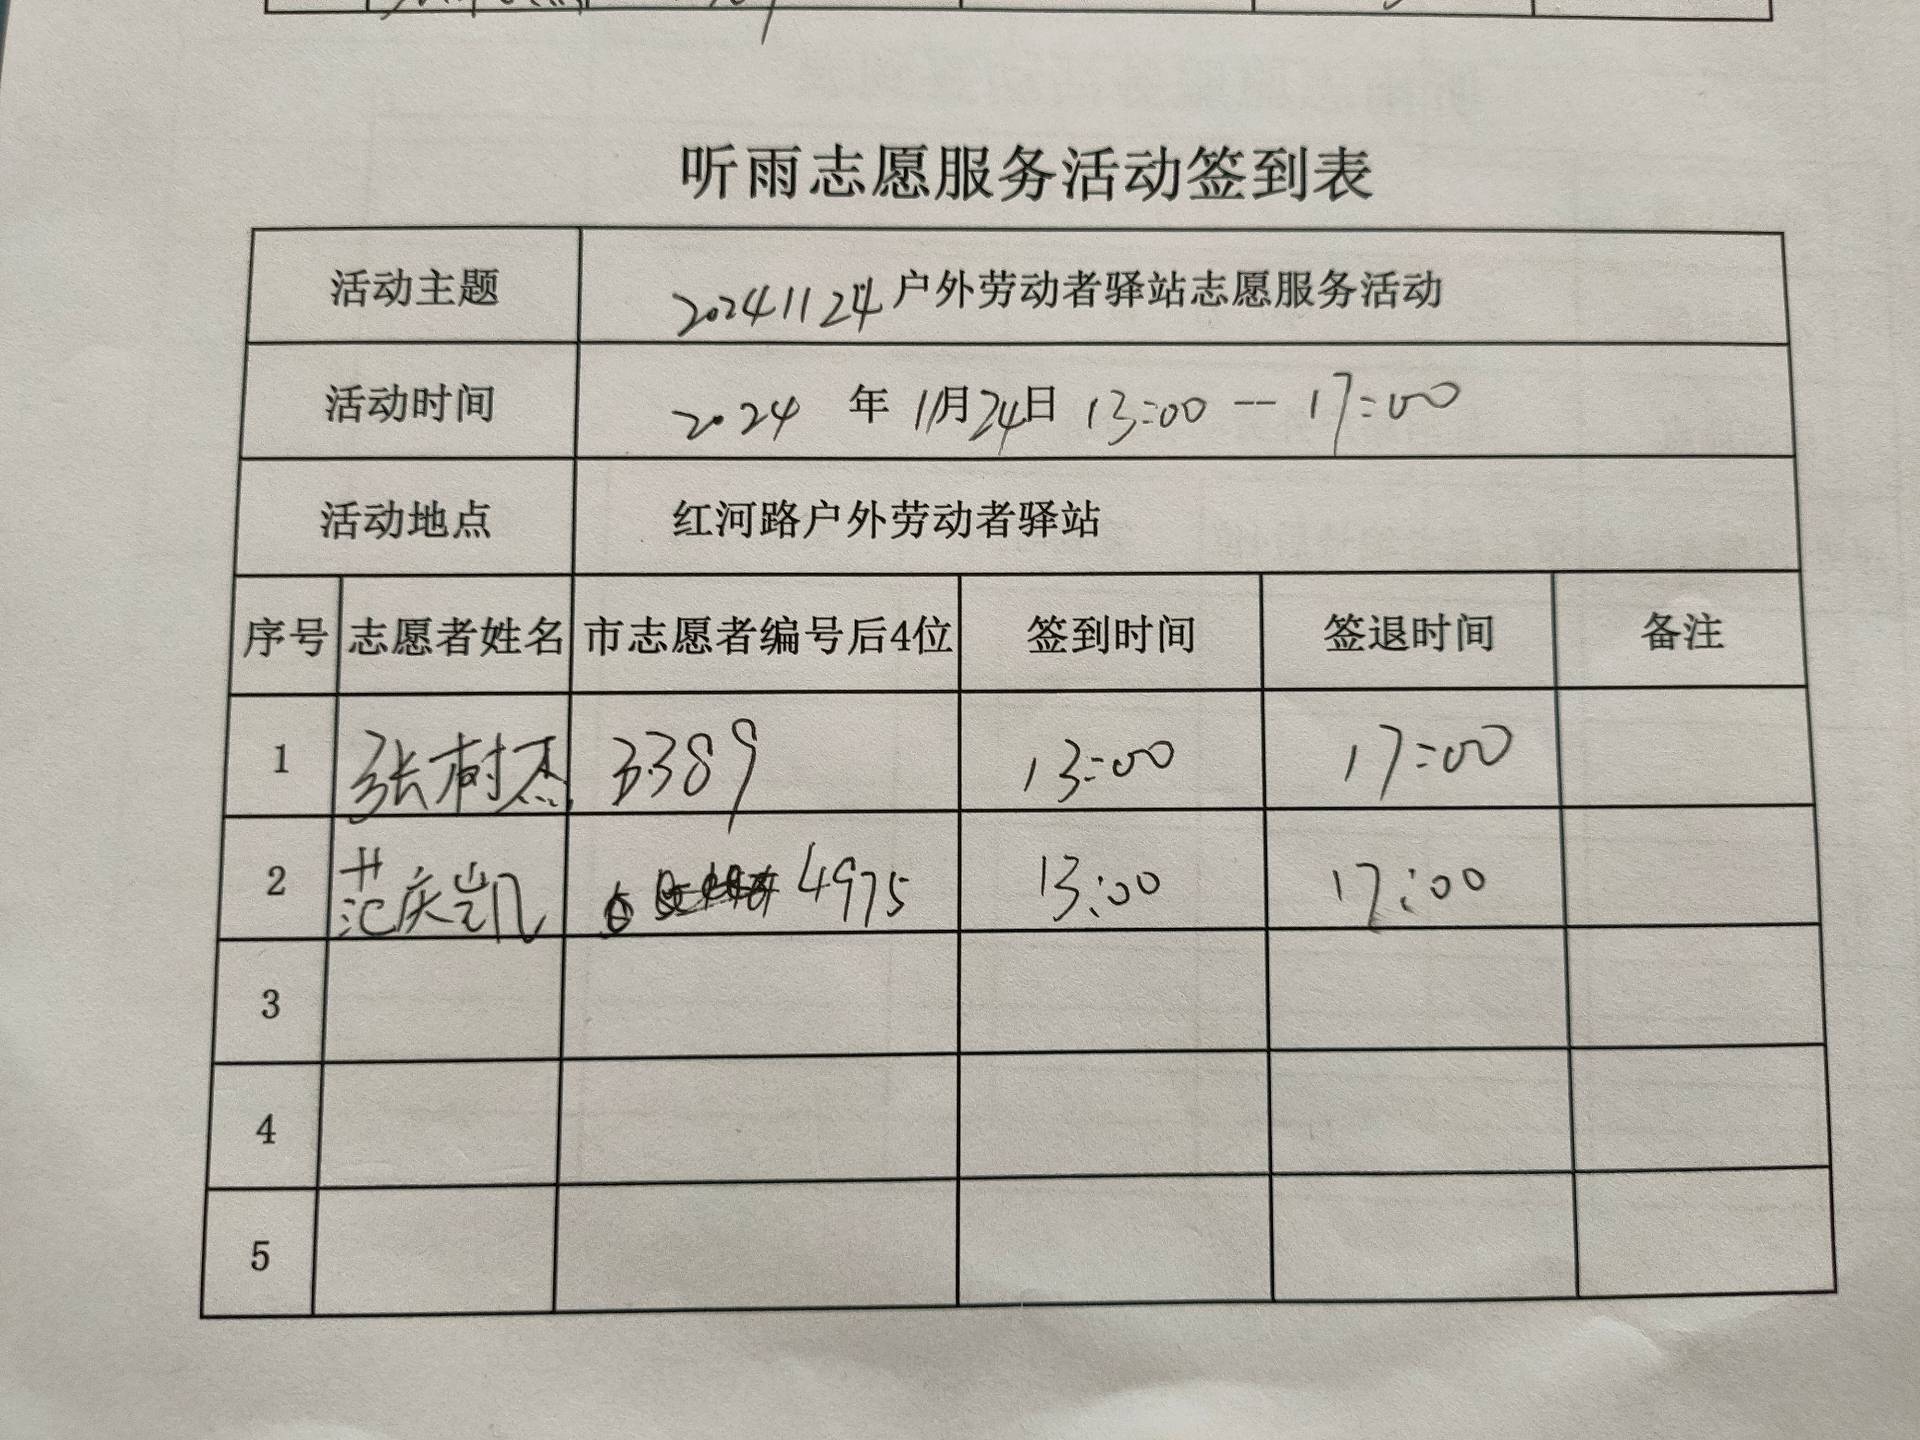 听雨志愿服务活动签到表
活动主题 20241124户外劳动者驿站志愿服务活动
活动时间 2024 年 11月24日 13:00 -- 17:00
活动地点 红河路户外劳动者驿站
序号 志愿者姓名 市志愿者编号后4位 签到时间 签退时间 备注
1 张树杰 3389 13:00 17:00
2 范庆凯 4975 13:00 17:00
3
4
5